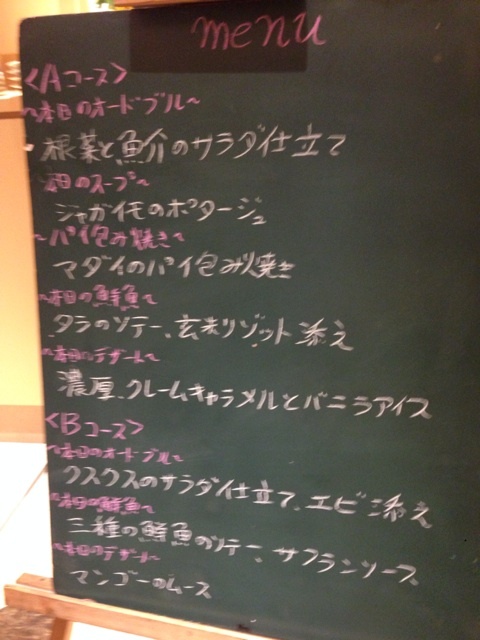 menu
<Aコース>
~本日のオードブル~
根菜と魚介のサラダ仕立て
本日のスープ~
ジャガイモのポタージュ
~パイ包み焼き~
マダイのパイ包み焼き
~本日の鮮魚~
タラのソテー、玄米リゾット添え
~本日のデザート~
濃厚、クレームキャラメルとバニラアイス
<Bコース>
~本日のオードブル~
クスクスのサラダ仕立て、エビ添え
~本日の鮮魚~
三種の鮮魚のソテー、サフランソース
~本日のデザート~
マンゴーのムース